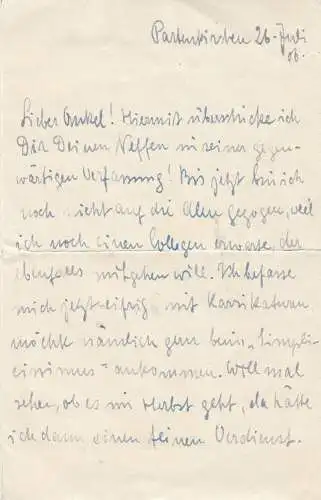 Partenkirchen 26. Juli
06.
Lieber Onkel! Hiermit überschicke ich
Dir Deinen Neffen in seiner gegen-
wärtigen Verfassung! Bis jetzt bin ich
noch nicht auf die Alm gezogen, weil
ich noch einen Collegen erwarte, der
ebenfalls mitgehen will. Ich befasse
mich jetzt eifrig mit Karrikaturen
möchte nämlich gern beim „Simpli-
cissimus" ankommen. Will mal
sehen, ob es im Herbst geht, da hätte
ich dann einen feinen Verdienst.